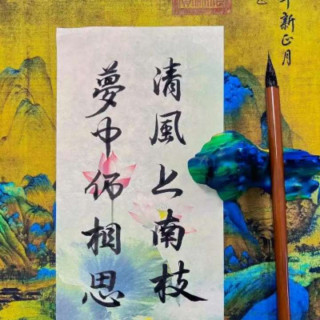 清風上南枝
夢中仍相思
新正月